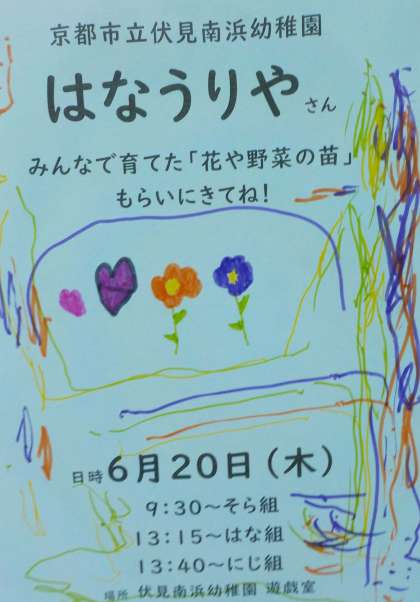 京都市立伏見南浜幼稚園
はなうりやさん
みんなで育てた「花や野菜の苗」
もらいにきてね!
日時 6月20日(木)
9:30～そら組
13:15～はな組
13:40～にじ組
場所 伏見南浜幼稚園 遊戯室